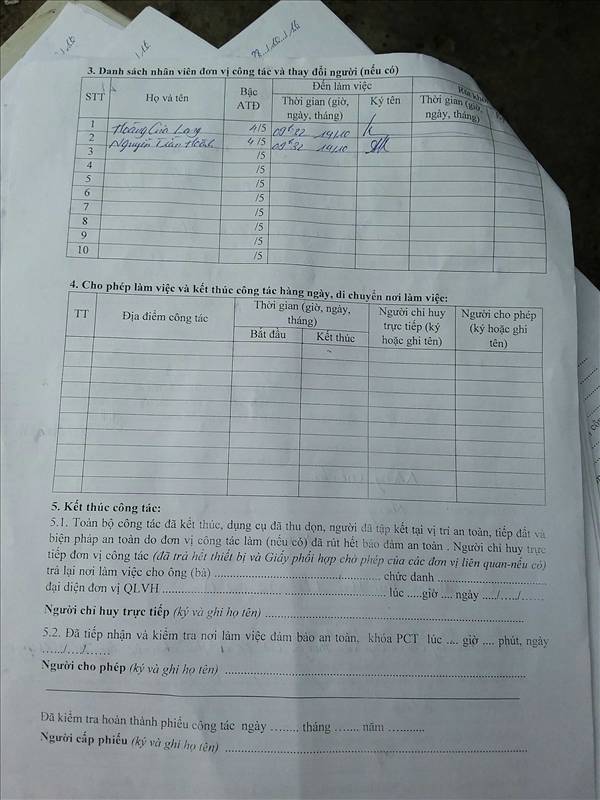 28../.10../.16
3. Danh sách nhân viên đơn vị công tác và thay đổi người (nếu có)
STT Họ và tên Bậc ATĐ Đến làm việc
Thời gian (giờ, ngày, tháng) Ký tên Thời gian (giờ, ngày, tháng)
1 Hoàng Gia Long 4/5
2 Nguyễn Tiến 4/5
3 /5
4 /5
5 /5
6 /5
7 /5
8 /5
9 /5
10 /5
4. Cho phép làm việc và kết thúc công tác hàng ngày, di chuyển nơi làm việc:
TT Địa điểm công tác Thời gian (giờ, ngày, tháng) Người chỉ huy trực tiếp (ký hoặc ghi tên) Người cho phép (ký hoặc ghi tên)
Bắt đầu Kết thúc
5. Kết thúc công tác:
5.1. Toàn bộ công tác đã kết thúc, dụng cụ đã thu dọn, người đã tập kết tại vị trí an toàn, tiếp đất và
biện pháp an toàn do đơn vị công tác làm (nếu có) đã rút hết bảo đảm an toàn . Người chỉ huy trực
tiếp đơn vị công tác (đã trả hết thiết bị và Giấy phối hợp cho phép của các đơn vị liên quan-nếu có)
trả lại nơi làm việc cho ông (bà) ........................ chức danh ........................
đại diện đơn vị QLVH ........................ lúc .....giờ .... ngày ..../..../......
Người chỉ huy trực tiếp (ký và ghi họ tên) ........................
5.2. Đã tiếp nhận và kiểm tra nơi làm việc đảm bảo an toàn, khóa PCT lúc .... giờ .... phút, ngày
....../..../......
Người cho phép (ký và ghi họ tên) ........................
Đã kiểm tra hoàn thành phiếu công tác ngày ........ tháng ....... năm ...........
Người cấp phiếu (ký và ghi họ tên) ........................